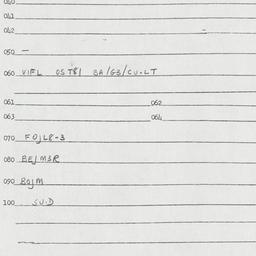 040
041
042
050 –
060 VIFL OST8/ BA/G3/CU-LT
061 062
063 064
070 FOJL8-3
080 BEJM3R
090 BOJM
100 SU-D